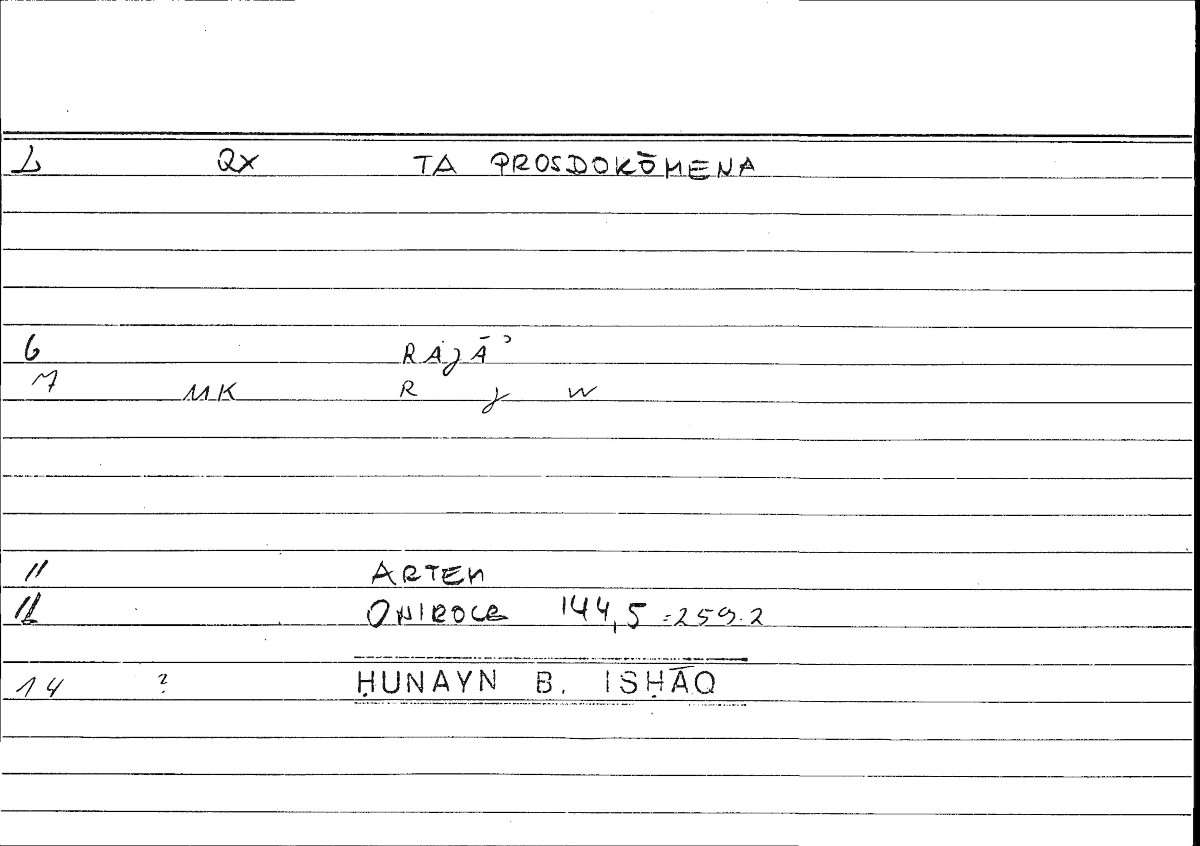 L QX TA PROSDOKŌMENA
6 RAJĀʾ
7 MK R j w
11 ARTEM
12 ONIROCR 144,5 =259.2
14 ? ḤUNAYN B. ISḤĀQ